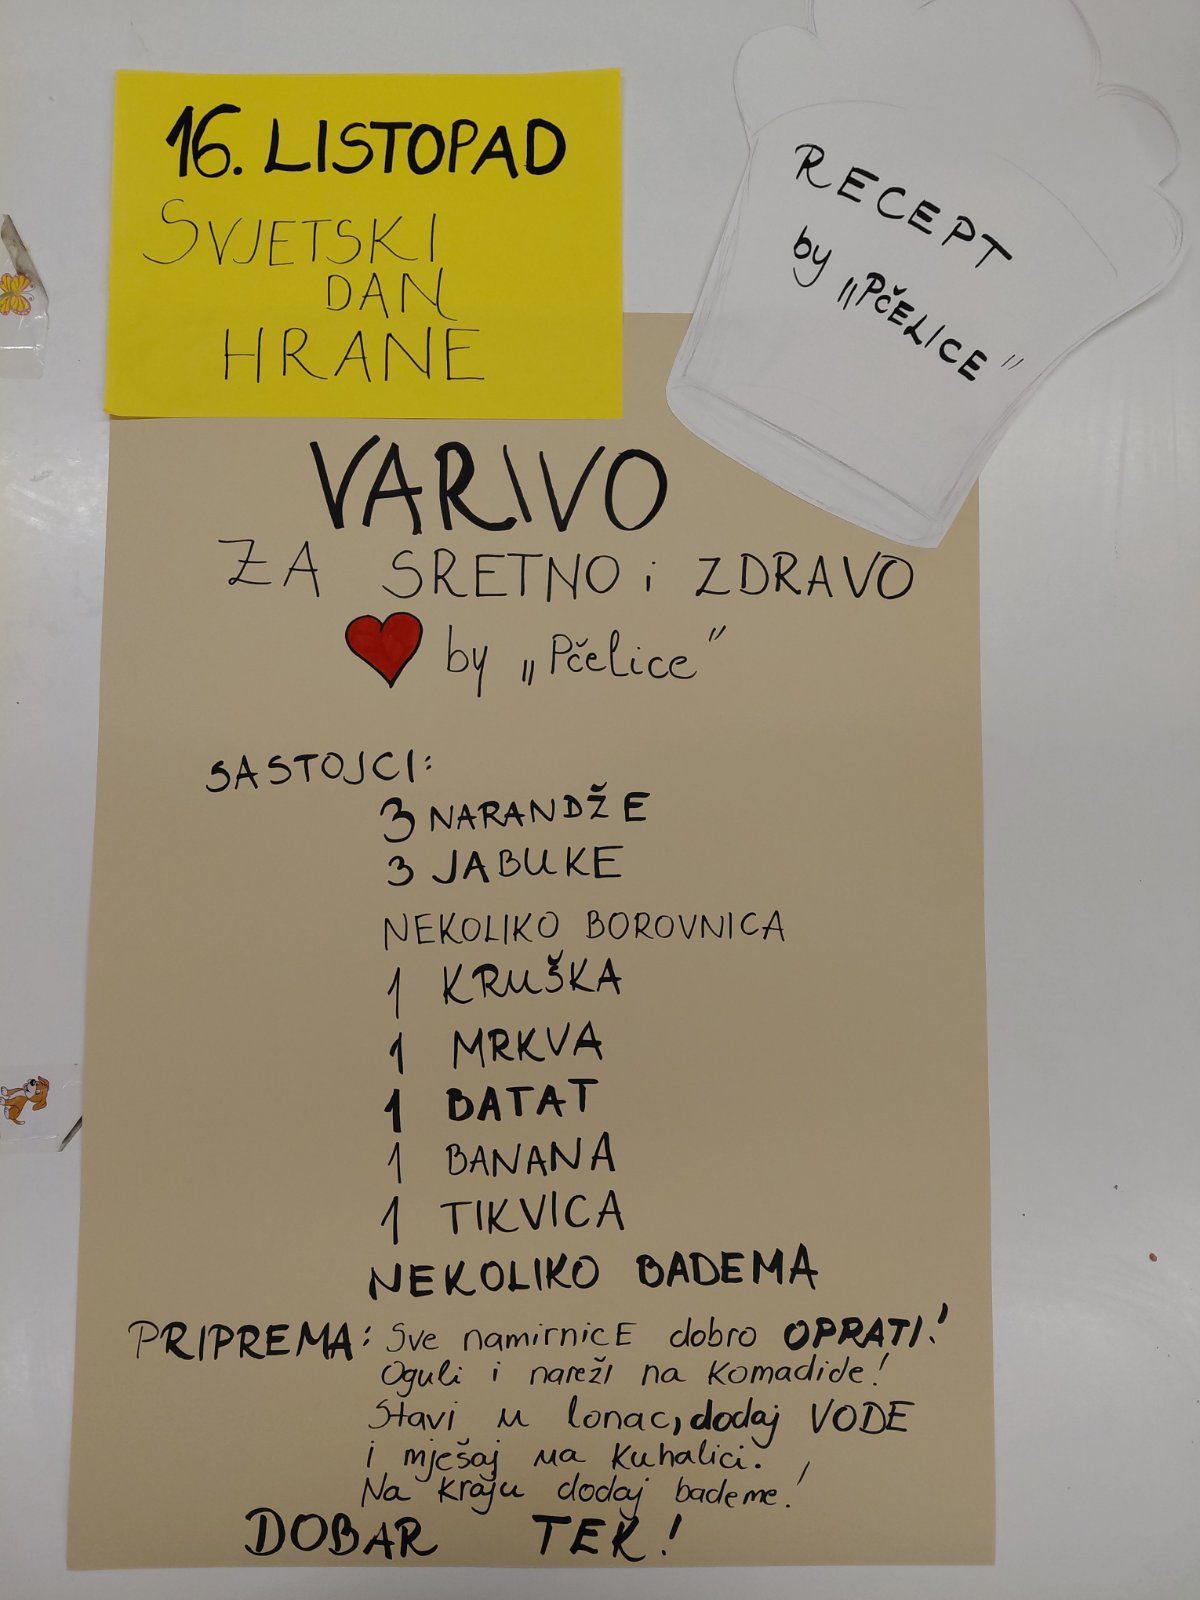 16. LISTOPAD
SVJETSKI
DAN
HRANE
RECEPT
by „PčELICE”
VARIVO
ZA SRETNO i ZDRAVO
by „Pčelice”
SASTOJCI:
3 NARANDŽE
3 JABUKE
NEKOLIKO BOROVNICA
1 KRUŠKA
1 MRKVA
1 BATAT
1 BANANA
1 TIKVICA
NEKOLIKO BADEMA
PRIPREMA: Sve namirnicE dobro OPRATI!
Oguli i nareži na komadiće!
Stavi u lonac, dodaj VODE
i mješaj na kuhalici.
Na kraju dodaj bademe!
DOBAR TEK!